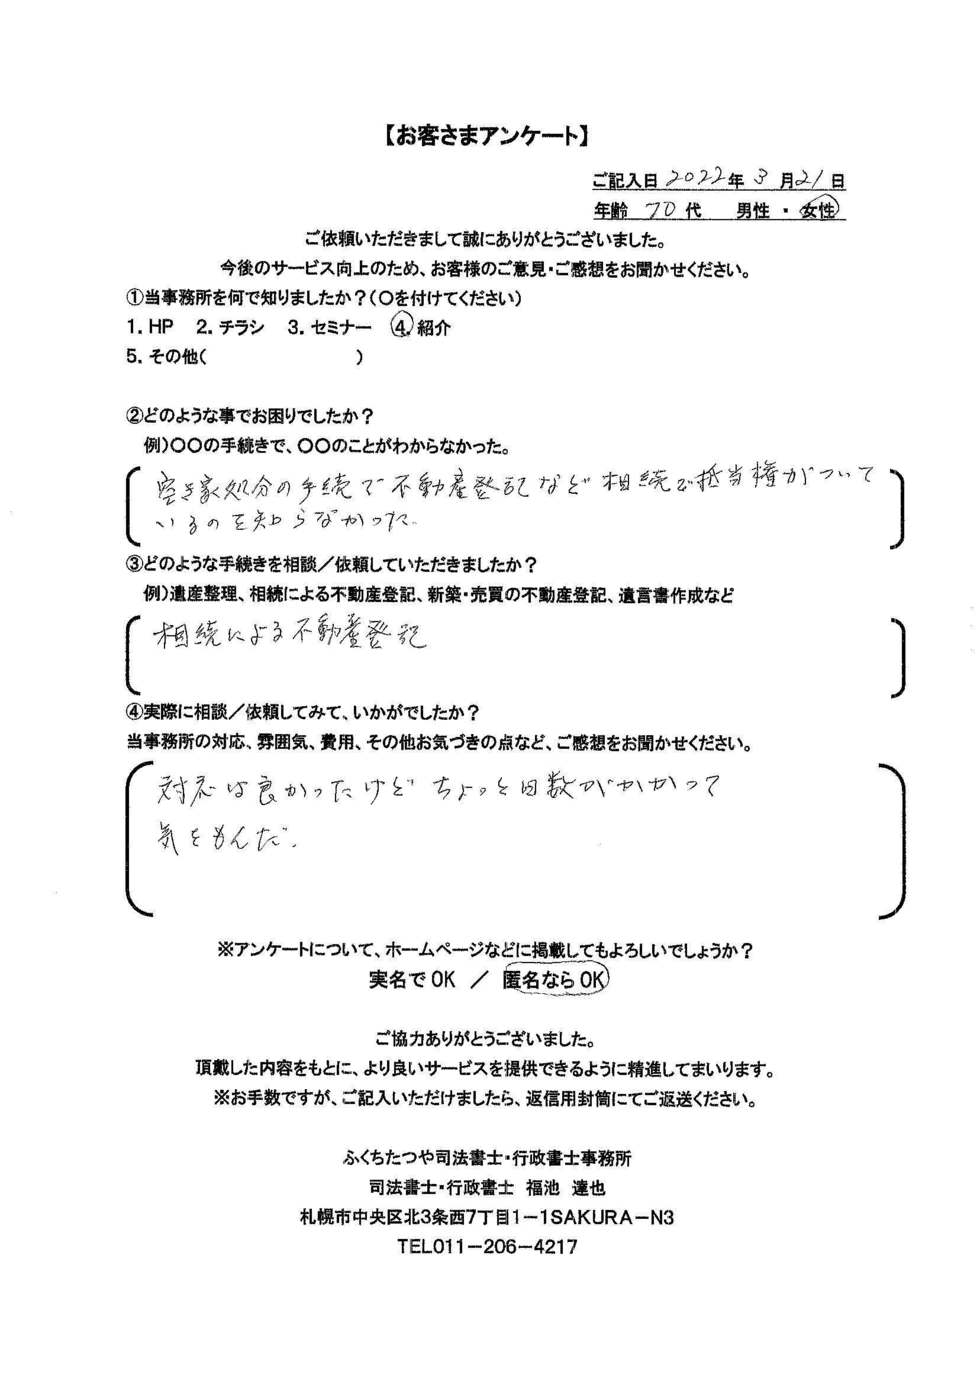 【お客さまアンケート】
ご記入日 2022年 3 月21日
年齢 70 代 男性 ・ 女性
ご依頼いただきまして誠にありがとうございました。
今後のサービス向上のため、お客様のご意見・ご感想をお聞かせください。
①当事務所を何で知りましたか？（〇を付けてください）
1. HP 2. チラシ 3. セミナー 4. 紹介
5. その他( )
②どのような事でお困りでしたか？
例)〇〇の手続きで、〇〇のことがわからなかった。
空き家処分の手続で不動産登記など相続で抵当権がついて
いるのを知らなかった.
③どのような手続きを相談／依頼していただきましたか？
例)遺産整理、相続による不動産登記、新築・売買の不動産登記、遺言書作成など
相続による不動産登記
④実際に相談／依頼してみて、いかがでしたか？
当事務所の対応、雰囲気、費用、その他お気づきの点など、ご感想をお聞かせください。
対応は良かったけど ちょっと日数がかかって
気をもんだ.
※アンケートについて、ホームページなどに掲載してもよろしいでしょうか？
実名で OK ／ 匿名なら OK
ご協力ありがとうございました。
頂戴した内容をもとに、より良いサービスを提供できるように精進してまいります。
※お手数ですが、ご記入いただけましたら、返信用封筒にてご返送ください。
ふくちたつや司法書士・行政書士事務所
司法書士・行政書士 福池 達也
札幌市中央区北3条西7丁目1－1SAKURA－N3
TEL011－206－4217